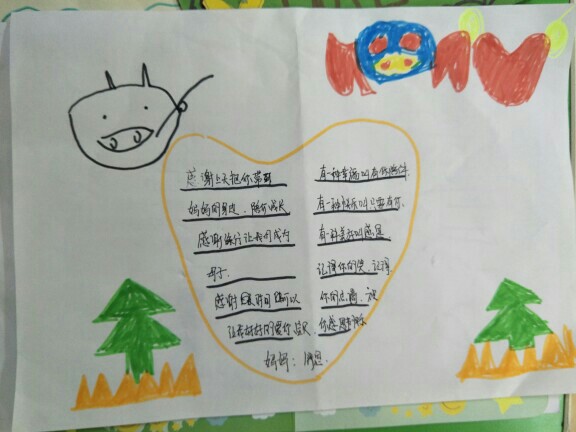 感谢上天把你带到
妈妈的身边，陪你成长
感谢缘分让我们成为
母子
感谢 时间 可以
让我好好的爱你
有一种幸福叫有你陪伴
有一种快乐叫只要有你
有一种美好叫感恩
记得你的笑，记得
你的
你感 快乐
妈妈：